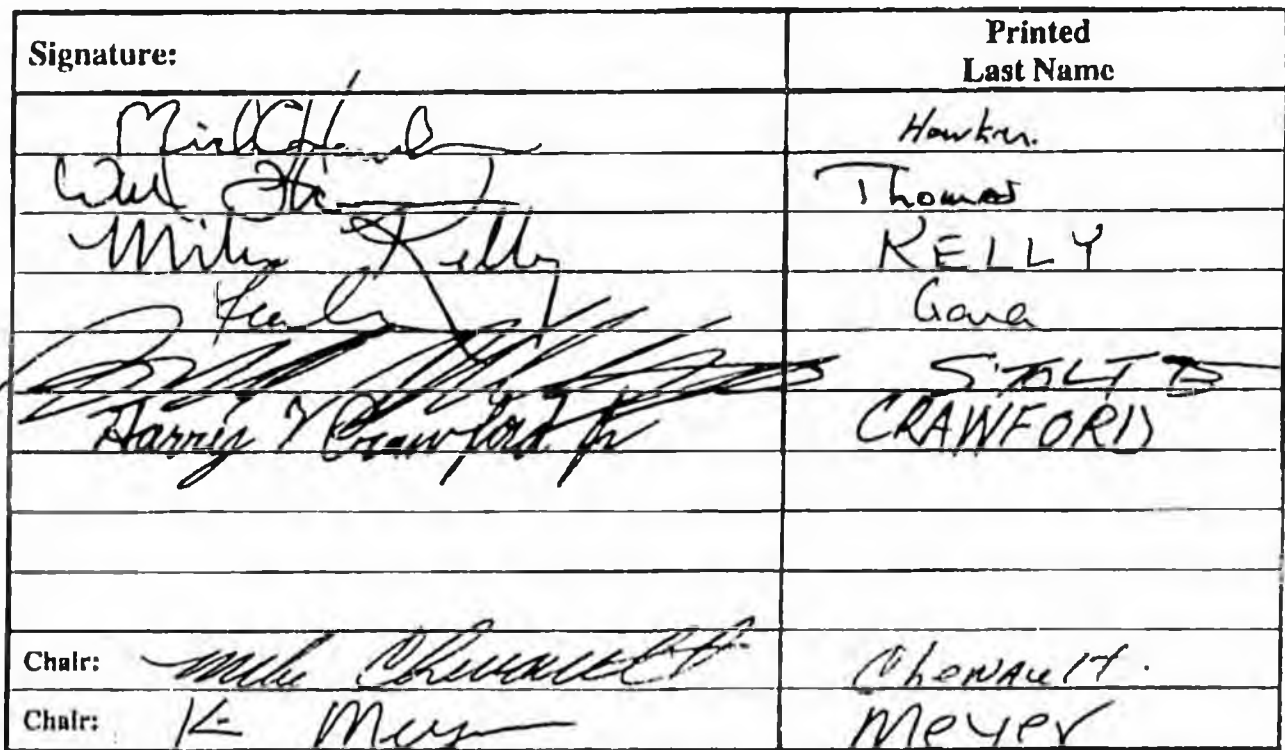 Signature: Printed Last Name
Hawker.
Thomas
Mike Kelly KELLY
Gara
STALTZ
Harry T Crawford Jr CRAWFORD
Chair: Mike Chenault Chenault.
Chair: K Meyer Meyer